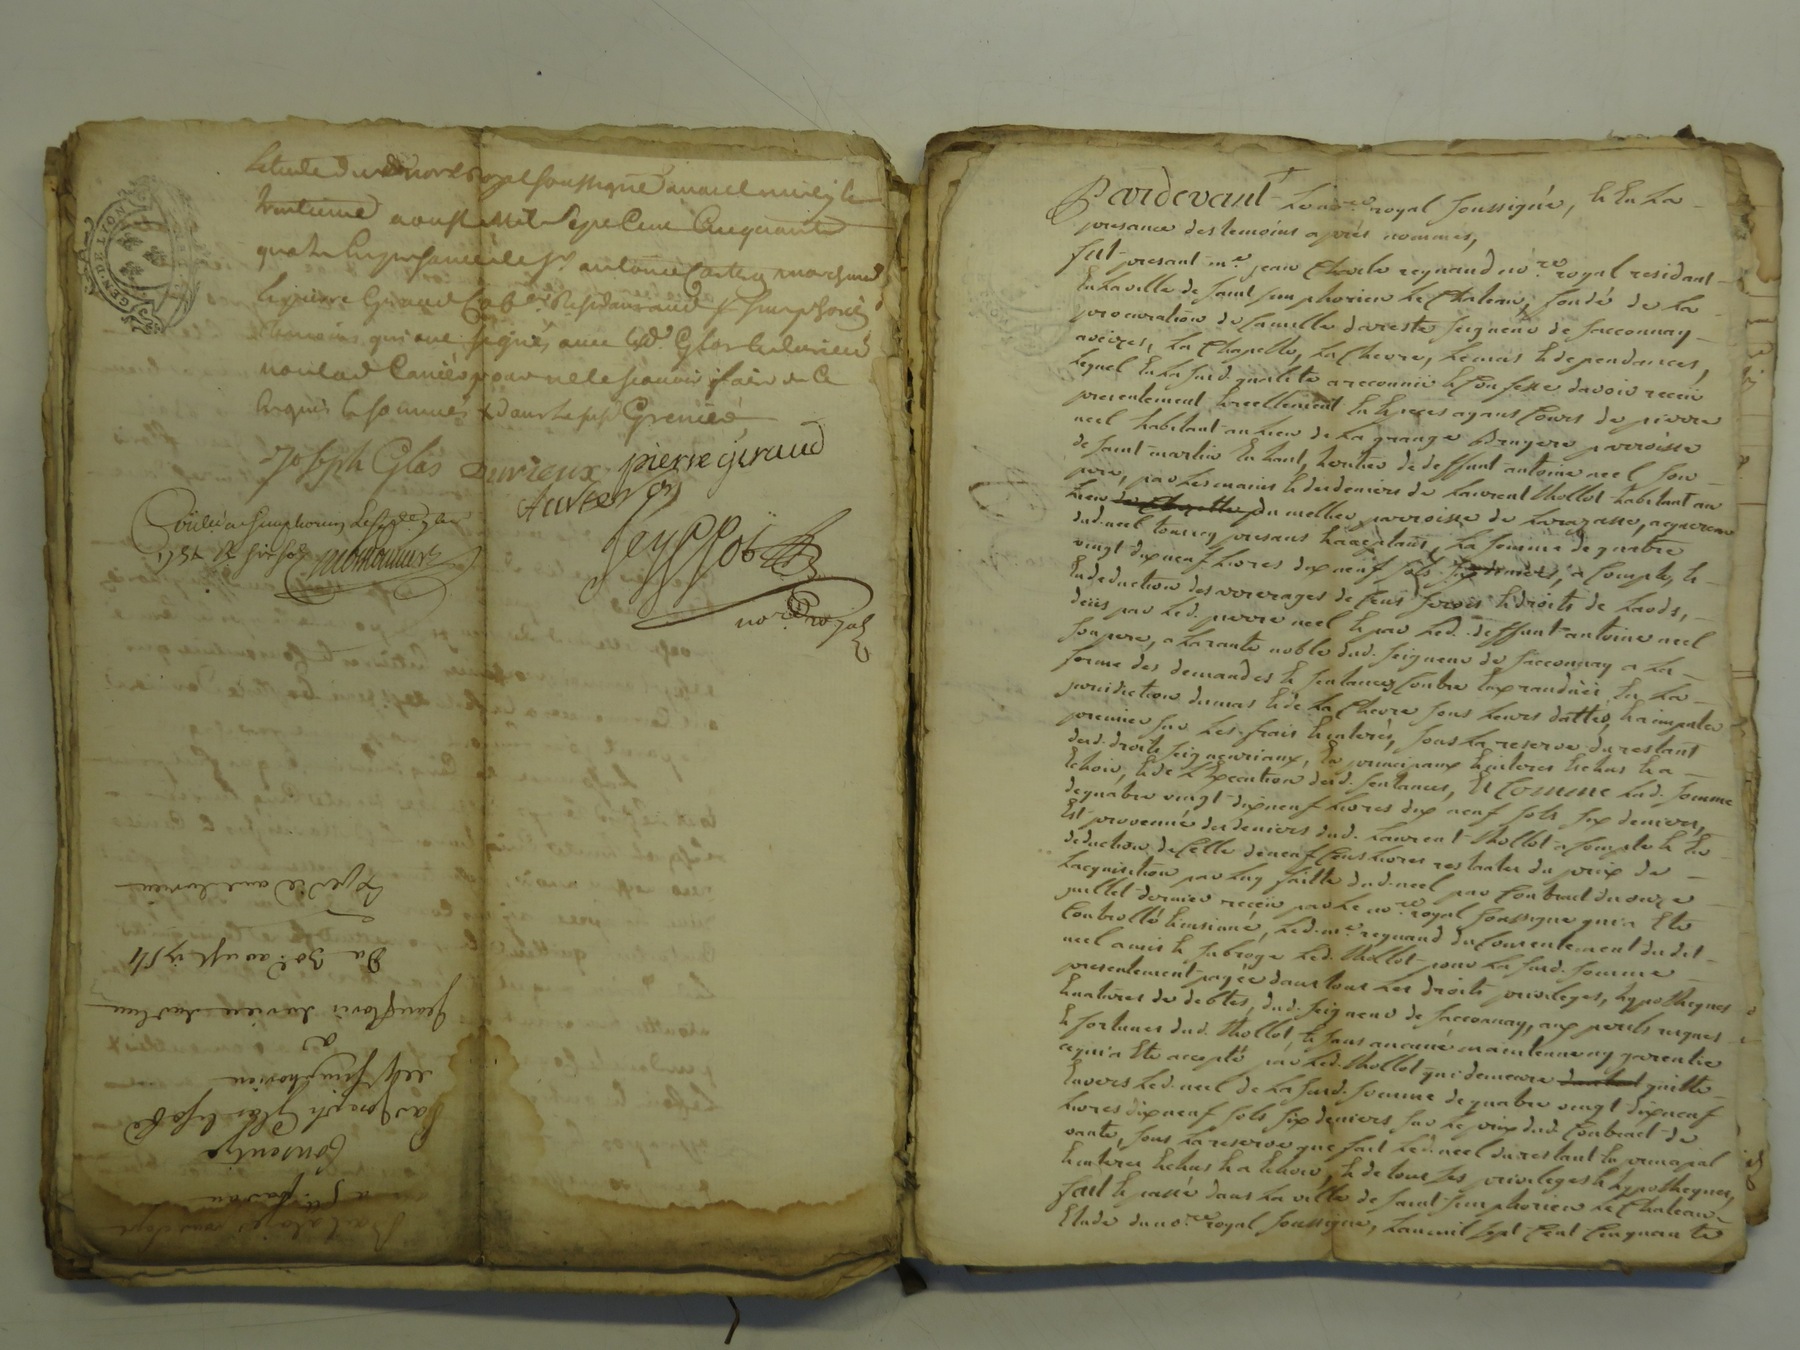 GEN. DE LYON
l'etude du no.re royal soussigné avant midy le
trentieme aoust mil sept cent cinquante
quatre en presance de sr. antoine
et pierre Giraud residants aud. st. simphorien
temoins qui ont signés avec led. Glas et durieu
non lad. pour ne le scavoir faire de ce
enquis et sommés Grenier
Joseph Glas Durieux pierre giraud
Controllé a st simphorien le
Reyssoü
no.re royal
Bail a loyer
Consenty
par joseph Glas
de st simphorien
a
jean durieu
Du 30e aoust 1754
Expedié aud. durieu
Pardevant Le no.re royal soussigné, et En La
presance des temoins aprés nommes,
fut present me. jean Charle reynaud no.re royal residant
En La ville de saint simphorien Le Chateau, fondé de La
procuration de Camille dareste seigneur de sacconnay
aveires, La Chapelle, La Chevre, Lemas et dependances,
Lequel En La susd. qualité a reconnu et Confessé davoir receu
presentement et reellement En Especes ayant Cours de pierre
neel habitant au Lieu de La grange Bruyere parroisse
de saint martin En haut, heritier de deffunt antoine neel son
pere, par Les mains et des deniers de Laurent thollot habitant au
Lieu du mellier parroisse de Larajasse, acquereur
dud. neel tous icy presans et acceptans, La somme de quatre
vingt dix neuf Livres dix neuf sols six deniers, a Compte, et
En deduction des arrerages de Cens servis et droits de Laods,
deus par led. pierre neel et par Led. deffunt antoine neel
son pere, a La rante noble dud. seigneur de sacconnay a La
forme des demandes et sentances Contre Eux randües En La
juridiction dumas et de La Chevre sous Leurs dattes, et a imputer
premier sur Les frais et interés, sous La reserve du restant
desd. droits seigneuriaux, En principaux et interes Echus et a
Echoir, et de L'Execution desd. sentances, Et Comme Lad. somme
de quatre vingt dix neuf Livres dix neuf sols six deniers,
Est provenüe des deniers dud. Laurent thollot a Compte et En
deduction de Celle de neuf Cent Livres restantes du prix de
Lacquisition par Luy faitte dud. neel par Contract du onze
juillet dernier receu par Le no.re royal soussigné qui a Eté
Controllé et insinué, Led. me. reynaud du Consentement dudit
neel a mis et subrogé Led. thollot pour La susd. somme
presentement payée dans tous Les droits privileges, hypotheques
et natures de debtes, dud. seigneur de sacconnay, aux perils risques
et fortunes dud. thollot, et sans aucune maintenue ny garentie
ce qui a Eté accepté par Led. thollot qui demeure quitte
Envers Led. neel de La susd. somme de quatre vingt dix neuf
Livres dix neuf sols six deniers sur Le prix dud. Contract de
vante, sous La reserve que fait Led. neel du restant En principal
et interes Echus et a Echoir, et de tous ses privileges et hypotheques,
fait et passé dans La ville de saint simphorien Le Chateau
Etude du no.re royal soussigné, Lan mil sept Cent Cinquante